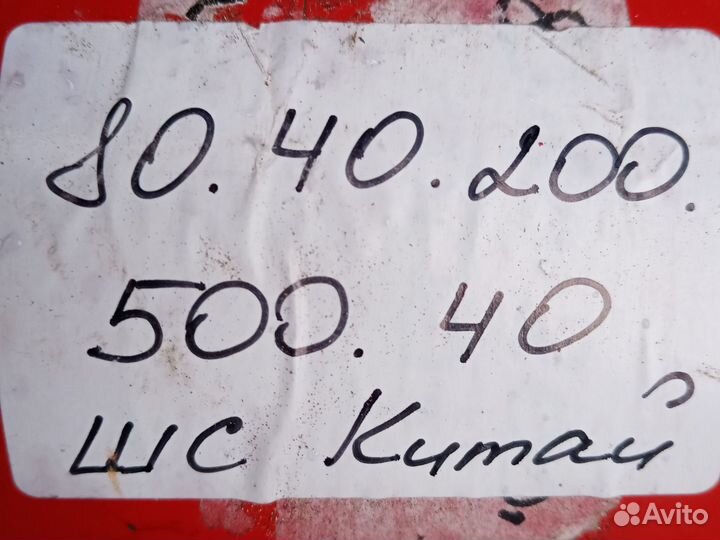 80. 40. 200.
500. 40
ШС Китай
Avito